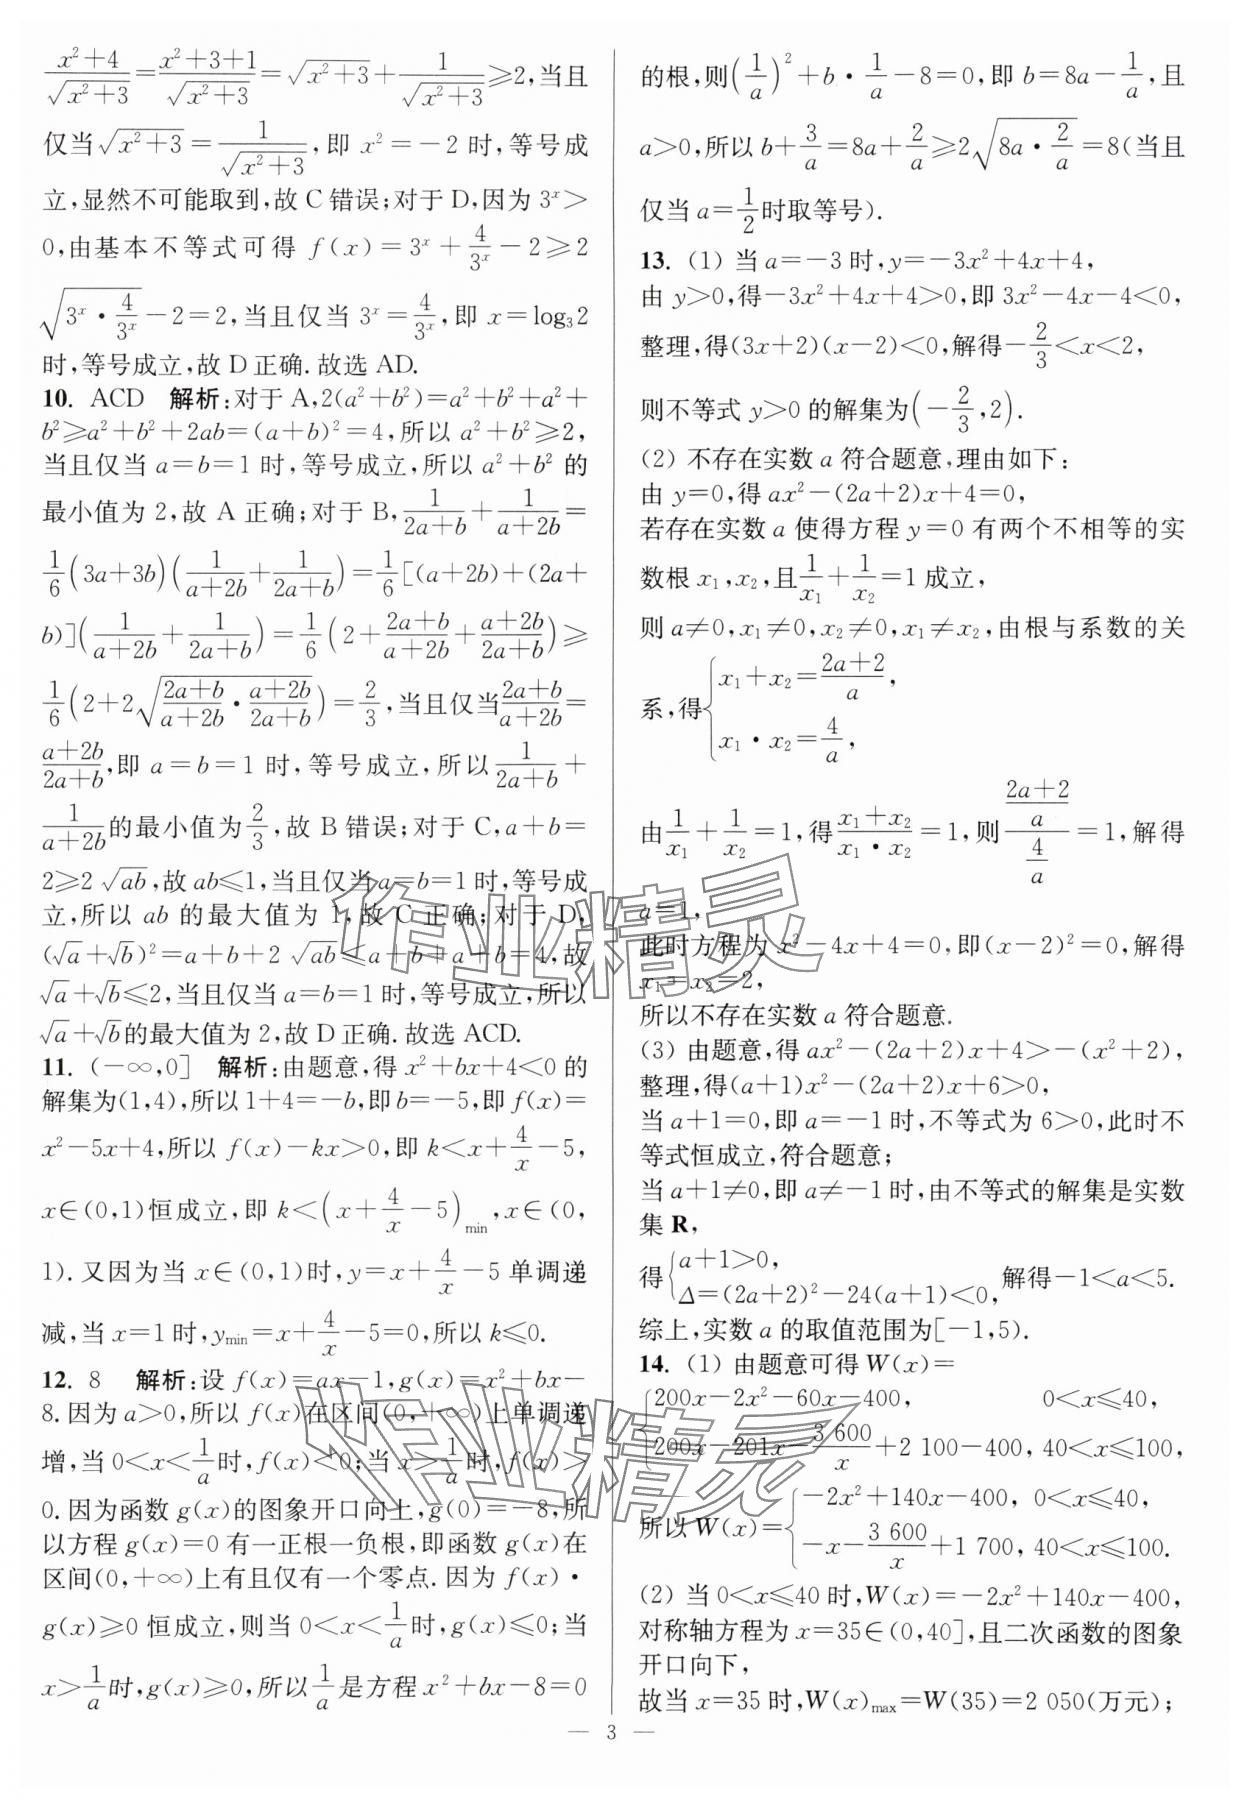 $\frac{x^2+4}{\sqrt{x^2+3}}=\frac{x^2+3+1}{\sqrt{x^2+3}}=\sqrt{x^2+3}+\frac{1}{\sqrt{x^2+3}}\geqslant 2$,当且
仅当$\sqrt{x^2+3}=\frac{1}{\sqrt{x^2+3}}$,即 $x^2=-2$ 时,等号成
立,显然不可能取到,故 C 错误;对于 D,因为 $3^x>$
$0$,由基本不等式可得 $f(x)=3^x+\frac{4}{3^x}-2\geqslant 2$
$\sqrt{3^x\cdot\frac{4}{3^x}}-2=2$,当且仅当 $3^x=\frac{4}{3^x}$,即 $x=\log_3 2$
时,等号成立,故 D 正确.故选 AD.
10. ACD 解析:对于 A,$2(a^2+b^2)=a^2+b^2+a^2+$
$b^2\geqslant a^2+b^2+2ab=(a+b)^2=4$,所以 $a^2+b^2\geqslant 2$,
当且仅当 $a=b=1$ 时,等号成立,所以 $a^2+b^2$ 的
最小值为 2,故 A 正确;对于 B,$\frac{1}{2a+b}+\frac{1}{a+2b}=$
$\frac{1}{6}(3a+3b)\left(\frac{1}{a+2b}+\frac{1}{2a+b}\right)=\frac{1}{6}[(a+2b)+(2a+$
$b)]\left(\frac{1}{a+2b}+\frac{1}{2a+b}\right)=\frac{1}{6}\left(2+\frac{2a+b}{a+2b}+\frac{a+2b}{2a+b}\right)\geqslant$
$\frac{1}{6}\left(2+2\sqrt{\frac{2a+b}{a+2b}\cdot\frac{a+2b}{2a+b}}\right)=\frac{2}{3}$,当且仅当$\frac{2a+b}{a+2b}=$
$\frac{a+2b}{2a+b}$,即 $a=b=1$ 时,等号成立,所以$\frac{1}{2a+b}+$
$\frac{1}{a+2b}$的最小值为$\frac{2}{3}$,故 B 错误;对于 C,$a+b=$
$2\geqslant 2\sqrt{ab}$,故 $ab\leqslant 1$,当且仅当 $a=b=1$ 时,等号成
立,所以 $ab$ 的最大值为 1,故 C 正确;对于 D,
$(\sqrt{a}+\sqrt{b})^2=a+b+2\sqrt{ab}\leqslant a+b+a+b=4$,故
$\sqrt{a}+\sqrt{b}\leqslant 2$,当且仅当 $a=b=1$ 时,等号成立,所以
$\sqrt{a}+\sqrt{b}$的最大值为 2,故 D 正确.故选 ACD.
11. $(-\infty,0]$ 解析:由题意,得 $x^2+bx+4<0$ 的
解集为$(1,4)$,所以 $1+4=-b$,即 $b=-5$,即 $f(x)=$
$x^2-5x+4$,所以 $f(x)-kx>0$,即 $k<x+\frac{4}{x}-5$,
$x\in(0,1)$恒成立,即 $k<\left(x+\frac{4}{x}-5\right)_{\min}$,$x\in(0,$
$1)$.又因为当 $x\in(0,1)$时,$y=x+\frac{4}{x}-5$ 单调递
减,当 $x=1$ 时,$y_{\min}=x+\frac{4}{x}-5=0$,所以 $k\leqslant 0$.
12. 8 解析:设 $f(x)=ax-1$,$g(x)=x^2+bx-$
$8$.因为 $a>0$,所以 $f(x)$在区间$(0,+\infty)$上单调递
增,当 $0<x<\frac{1}{a}$时,$f(x)<0$;当 $x>\frac{1}{a}$时,$f(x)>$
$0$.因为函数 $g(x)$的图象开口向上,$g(0)=-8$,所
以方程 $g(x)=0$ 有一正根一负根,即函数 $g(x)$在
区间$(0,+\infty)$上有且仅有一个零点.因为 $f(x)\cdot$
$g(x)\geqslant 0$ 恒成立,则当 $0<x<\frac{1}{a}$时,$g(x)\leqslant 0$;当
$x>\frac{1}{a}$时,$g(x)\geqslant 0$,所以$\frac{1}{a}$是方程 $x^2+bx-8=0$
的根,则$\left(\frac{1}{a}\right)^2+b\cdot\frac{1}{a}-8=0$,即 $b=8a-\frac{1}{a}$,且
$a>0$,所以 $b+\frac{3}{a}=8a+\frac{2}{a}\geqslant 2\sqrt{8a\cdot\frac{2}{a}}=8$(当且
仅当 $a=\frac{1}{2}$时取等号).
13. (1) 当 $a=-3$ 时,$y=-3x^2+4x+4$,
由 $y>0$,得$-3x^2+4x+4>0$,即 $3x^2-4x-4<0$,
整理,得$(3x+2)(x-2)<0$,解得$-\frac{2}{3}<x<2$,
则不等式 $y>0$ 的解集为$\left(-\frac{2}{3},2\right)$.
(2) 不存在实数 $a$ 符合题意,理由如下:
由 $y=0$,得 $ax^2-(2a+2)x+4=0$,
若存在实数 $a$ 使得方程 $y=0$ 有两个不相等的实
数根 $x_1,x_2$,且$\frac{1}{x_1}+\frac{1}{x_2}=1$ 成立,
则 $a\neq 0,x_1\neq 0,x_2\neq 0,x_1\neq x_2$,由根与系数的关
系,得$\begin{cases}x_1+x_2=\frac{2a+2}{a},\\x_1\cdot x_2=\frac{4}{a},\end{cases}$
由$\frac{1}{x_1}+\frac{1}{x_2}=1$,得$\frac{x_1+x_2}{x_1\cdot x_2}=1$,则$\frac{\frac{2a+2}{a}}{\frac{4}{a}}=1$,解得
$a=1$,
此时方程为 $x^2-4x+4=0$,即$(x-2)^2=0$,解得
$x_1=x_2=2$,
所以不存在实数 $a$ 符合题意.
(3) 由题意,得 $ax^2-(2a+2)x+4>-(x^2+2)$,
整理,得$(a+1)x^2-(2a+2)x+6>0$,
当 $a+1=0$,即 $a=-1$ 时,不等式为 $6>0$,此时不
等式恒成立,符合题意;
当 $a+1\neq 0$,即 $a\neq -1$ 时,由不等式的解集是实数
集 R,
得$\begin{cases}a+1>0,\\\Delta=(2a+2)^2-24(a+1)<0,\end{cases}$解得$-1<a<5$.
综上,实数 $a$ 的取值范围为$[-1,5)$.
14. (1) 由题意可得 $W(x)=$
$\begin{cases}200x-2x^2-60x-400, & 0<x\leqslant 40,\\200x-201x-\frac{3\ 600}{x}+2\ 100-400, & 40<x\leqslant 100,\end{cases}$
所以 $W(x)=\begin{cases}-2x^2+140x-400, & 0<x\leqslant 40,\\-x-\frac{3\ 600}{x}+1\ 700, & 40<x\leqslant 100.\end{cases}$
(2) 当 $0<x\leqslant 40$ 时,$W(x)=-2x^2+140x-400$,
对称轴方程为 $x=35\in(0,40]$,且二次函数的图象
开口向下,
故当 $x=35$ 时,$W(x)_{\max}=W(35)=2\ 050$(万元);
— 3 —
作业精灵
作业精灵